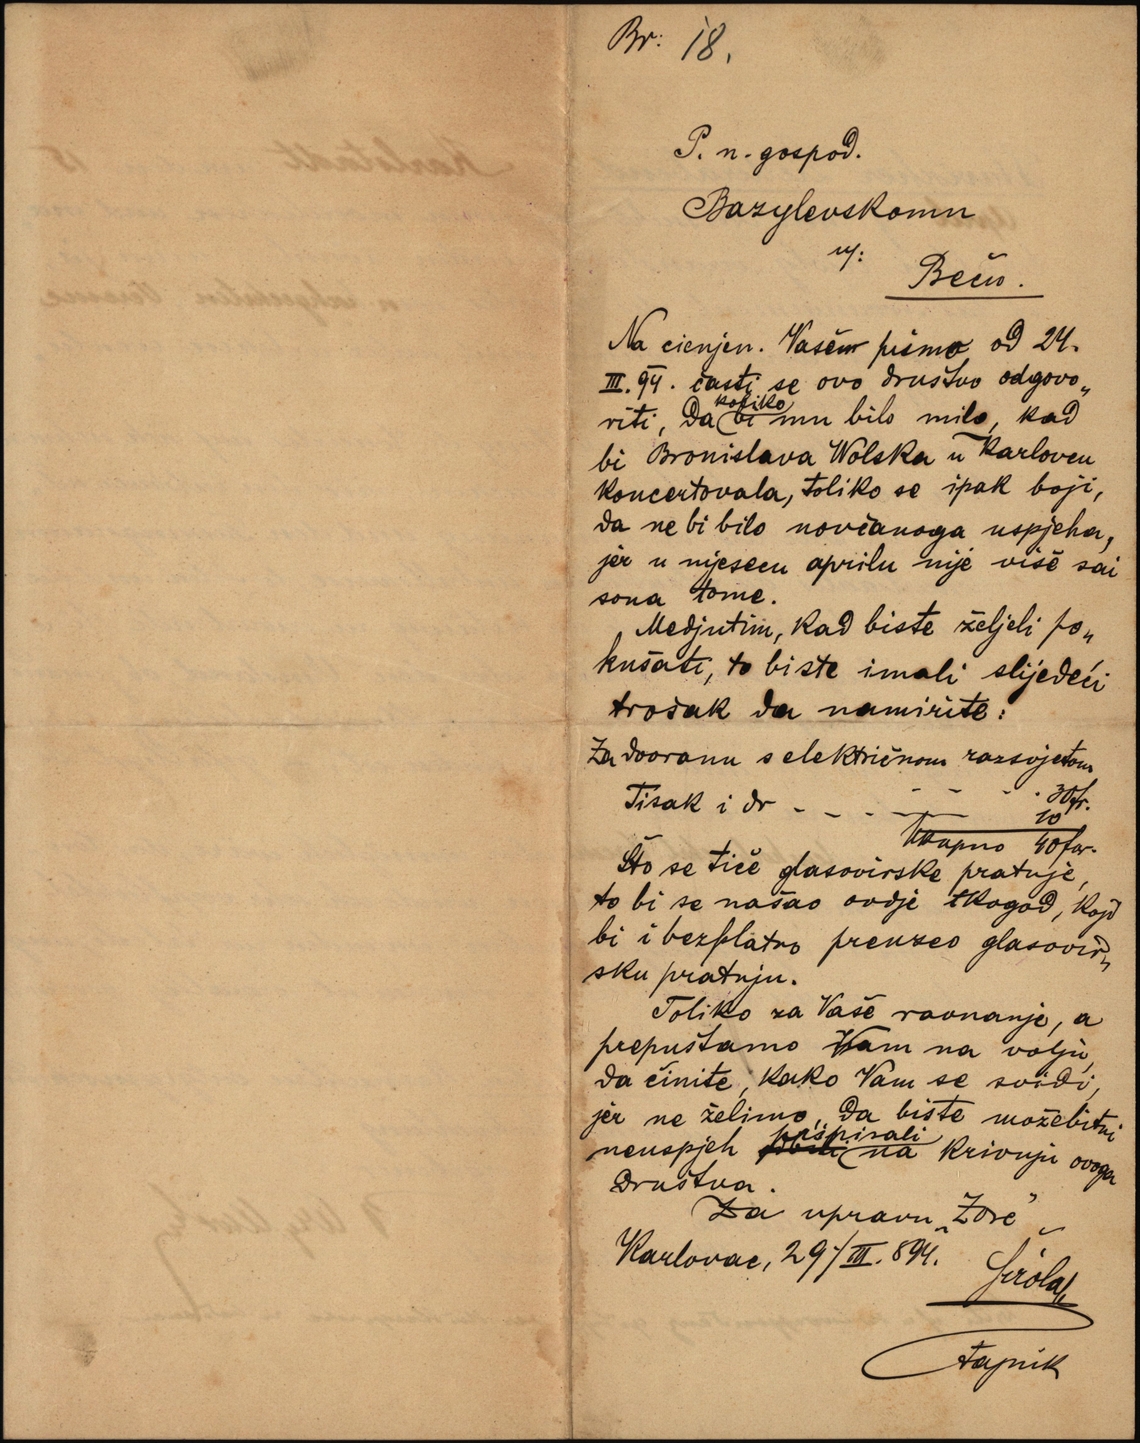 Br: 18.
P. n. gospod.
Bazylevskomu
u:
Beču.
Na cienjen. Vašem pismo od 24.
III. 94. časti se ovo društvo odgovo„
riti, da koliko bi mu bilo milo, kad
bi Bronislava Wolska u Karlovcu
koncertovala, toliko se ipak boji,
da nebi bilo novčanoga uspjeha,
jer u mjesecu aprilu nije više sai
sona tome.
Medjutim, kad biste željeli po„
kušati, to biste imali slijedeći
trošak da namirite:
Za dvoranu s električnom razsvjetom
30 fr.
Tisak i dr - - - - 10
Ukupno 40 for.
Što se tiče glasovirske pratnje,
to bi se našao ovdje tkogod, koji
bi i bezplatno preuzeo glasovir„
sku pratnju.
Toliko za Vaše ravnanje, a
prepuštamo Vam na volju,
da činite, kako Vam se svidi,
jer ne želimo, da biste možebitni
neuspjeh pripisali na krivnju ovoga
društva.
Za upravu „Zore"
Karlovac, 29/III. 894.
tajnik